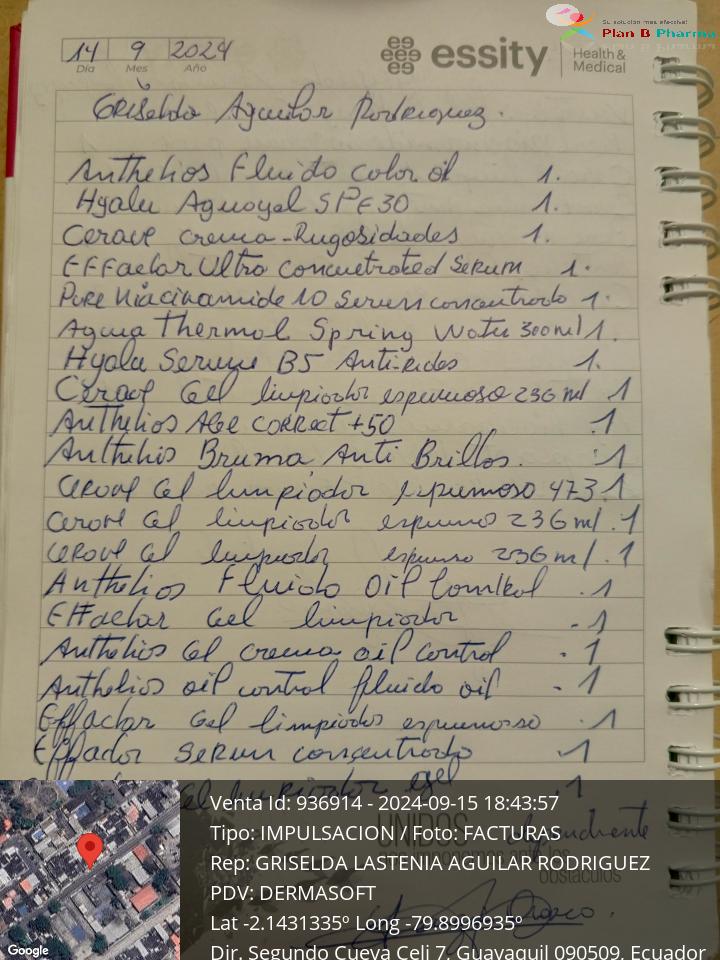 Su solución más efectiva!
Plan B Pharma
14 9 2024
Día Mes Año
essity Health & Medical
Griselda Aguilar Rodriguez.
Anthelios Fluido color oil 1.
Hyalu Aguagel SPF 30 1.
Cerave crema-Rugosidades 1.
EFFaclar Ultra Concentrated Serum 1.
Pure Niacinamide 10 Serum concentrado 1.
Agua Thermal Spring Water 300ml 1.
Hyalu Serum B5 Anti-rides 1.
Cerave Gel limpiador espumoso 236 ml 1
Anthelios Age correct +50 .1
Anthelios Bruma Anti Brillos. 1
Cerave Gel limpiador espumoso 473.1
Cerave Gel limpiador espumo 236 ml .1
Cerave Gel limpiador espumo 236 ml .1
Anthelios Fluido Oil Control .1
Effaclar Gel limpiador .1
Anthelios Gel crema oil control .1
Anthelios oil control fluido oil .1
Effaclar Gel limpiador espumoso .1
Effaclar Serum concentrado .1
Gel limpiador .1
UNIDOS
obstáculos
Venta Id: 936914 - 2024-09-15 18:43:57
Tipo: IMPULSACION / Foto: FACTURAS
Rep: GRISELDA LASTENIA AGUILAR RODRIGUEZ
PDV: DERMASOFT
Lat -2.1431335º Long -79.8996935º
Dir. Segundo Cueva Celi 7, Guayaquil 090509, Ecuador
Google